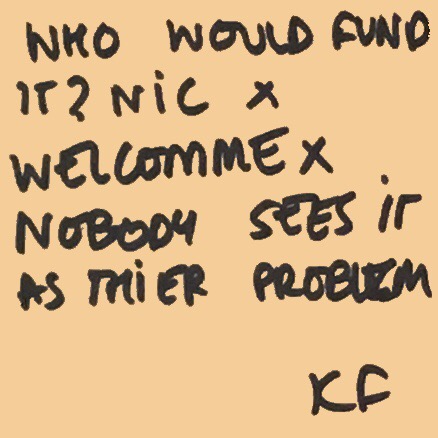 WHO WOULD FUND
IT? NiC X
WELCOMME X
NOBODY SEES iT
AS THiER PROBLEM
KF